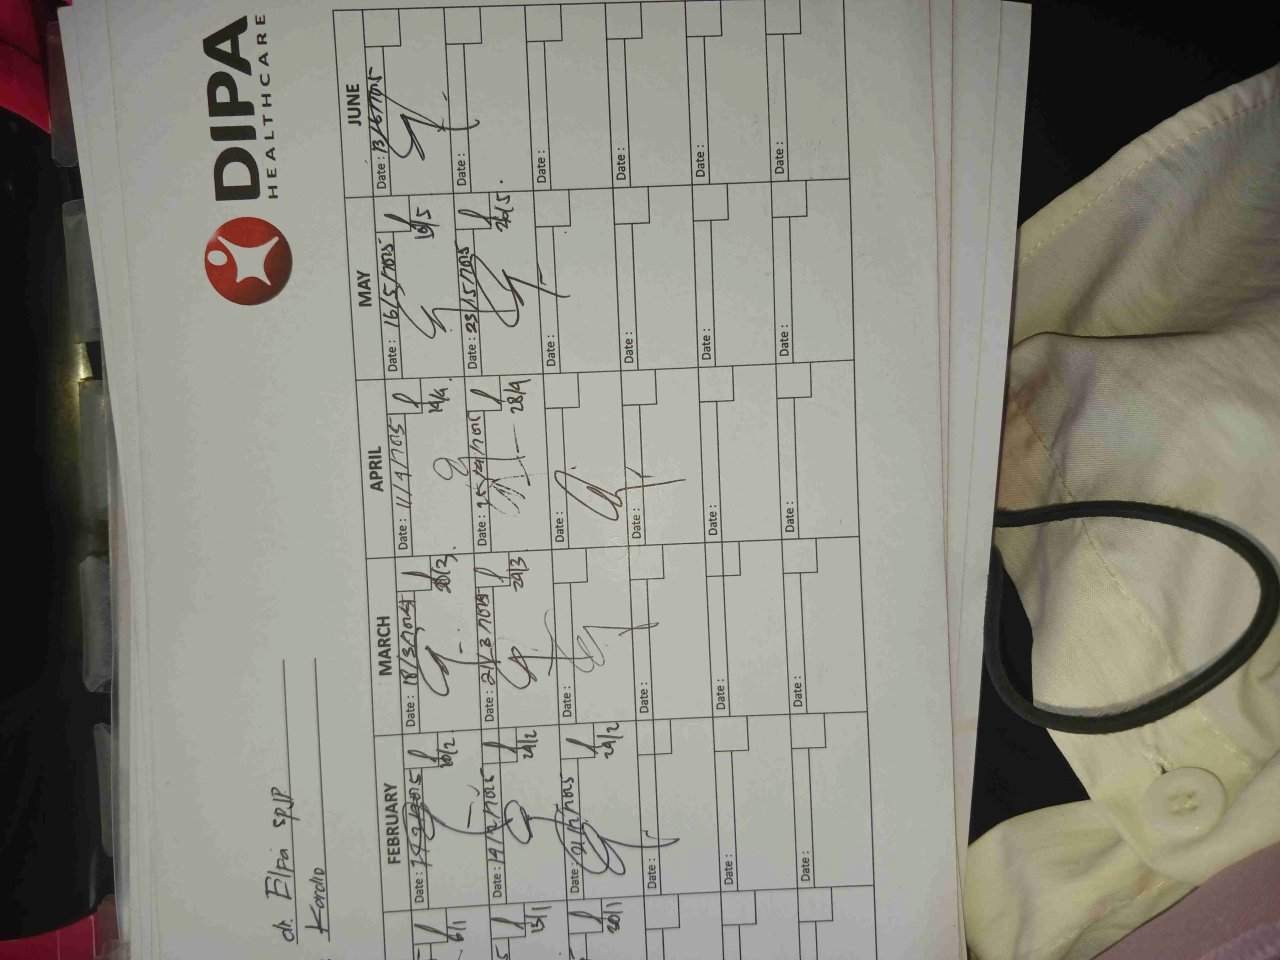 DIPA
HEALTHCARE
dr. Elpa SpJP
Kardio
FEBRUARY MARCH APRIL MAY JUNE
Date: Date: 18/3/2025 Date: 11/4/2025 Date: 16/5/2025 Date: 13/6/2025
6/1 10/2 14/4. 19/5
Date: 14/2/2025 Date: 21/3/2025 Date: 25/4/2025 Date: 23/5/2025 Date:
13/1 24/2 24/3 28/4 26/5.
Date: 21/2/2025 Date: Date: Date: Date:
20/1 24/2
Date: Date: Date: Date: Date:
Date: Date: Date: Date: Date:
Date: Date: Date: Date: Date: